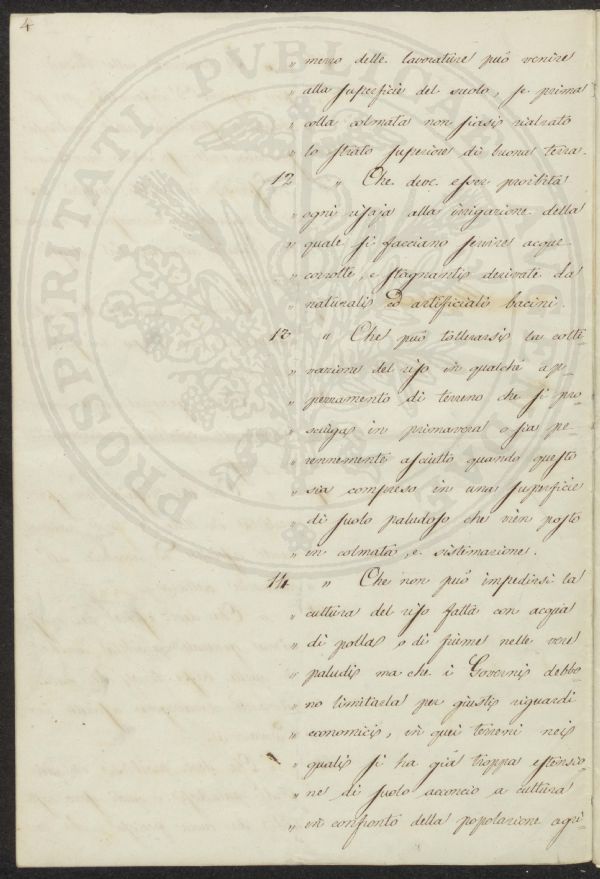 4
" mero delle lavorature può venire
" alla superficie del suolo, se prima
" colla colmata non siasi rialzato
" lo strato superiore di buona terra.
12 " Che deve esser proibita
" ogni risaja alla irrigazione della
" quale si facciano servire acque
" corrotte, e stagnanti derivate da
" naturali ed artificiali bacini.
13 " Che può tollerarsi la colti
" vazione del riso in qualche ap-
" pezzamento di terreno che si pro-
" sciuga in primavera o sia pe-
" rennemente asciutto quando questo
" sia compreso in una superficie
" di suolo paludoso che vien posto
" in colmata, e sistemazione.
14 " Che non può impedirsi la
" cultura del riso fatta con acqua
" di polla, o di fiume nelle vere
" paludi ma che i Governi debbo
" no limitarla per giusti riguardi
" economici, in quei terreni nei
" quali si ha già troppa estensio-
" ne di suolo acconcio a cultura
" in confronto della popolazione agri-
PROSPERITATI PVBLICAE